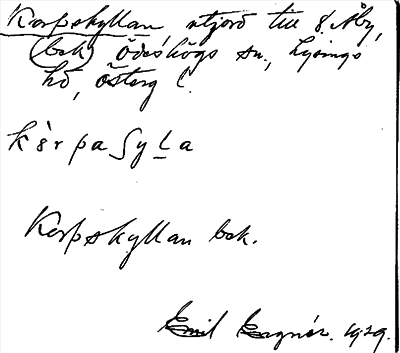 Korpskyllan utjord till S. Åby,
bok Ödeshögs sn., Lysings
hd, Österg l.
kèrpaʃyḻa
Korpskyllan bok.
Emil Lagnér. 1929.